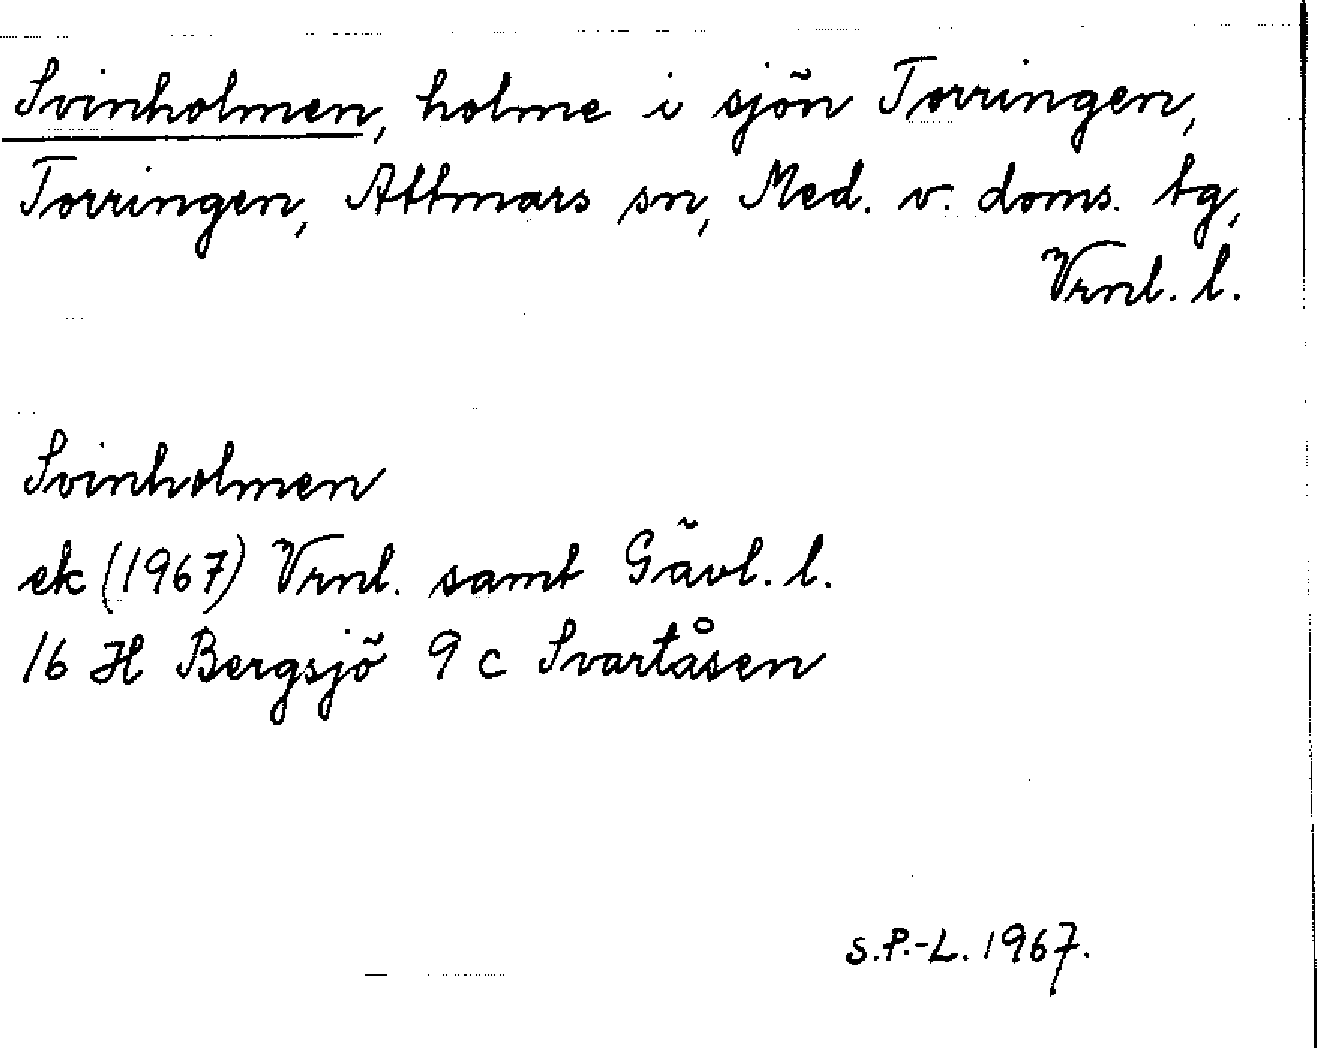 Svinholmen, holme i sjön Torringen,
Torringen, Attmars sn, Med. v. doms. tg,
Vrnl. l.
Svinholmen
ek (1967) Vrnl. samt Gävl. l.
16 H Bergsjö 9 c Svartåsen
S.P.-L. 1967.